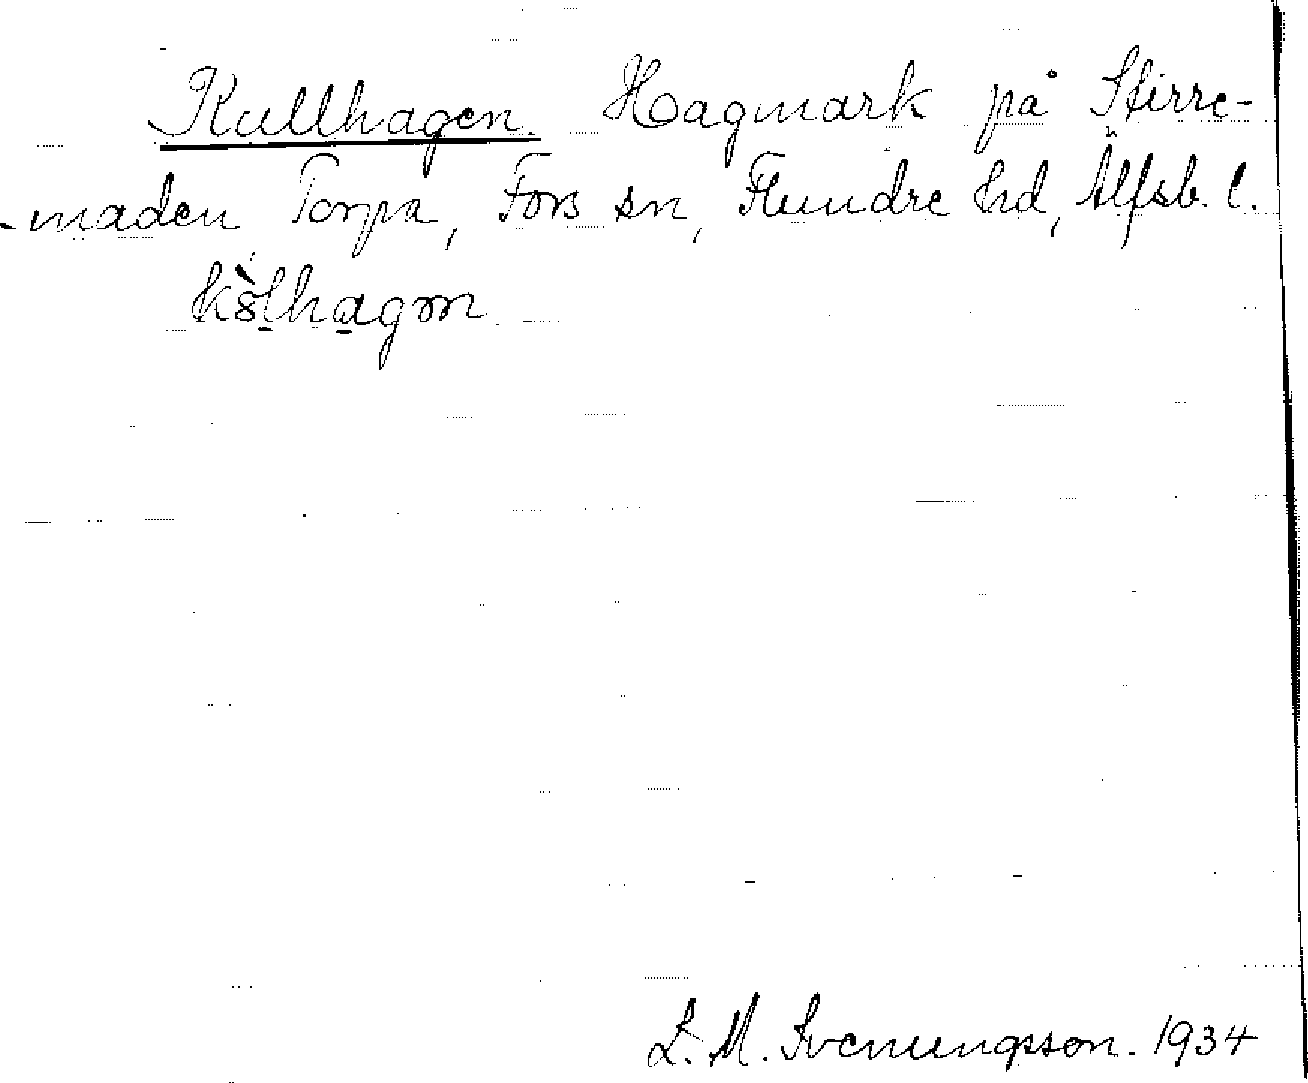 Kullhagen. Hagmark på Stirre-
-maden Torpa, Fors sn, Flundre hd, Älfsb. l.
L. M. Svenungsson. 1934